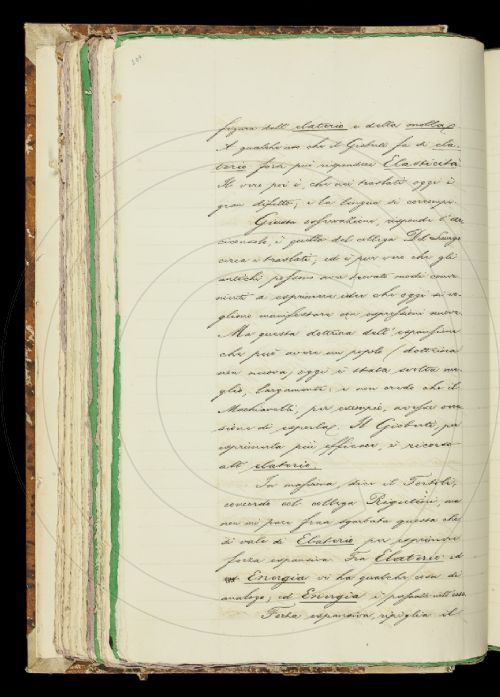 figura dell' elaterio e della molla.
A qualche uso che il Gioberti fa di ela-
terio forse può rispondere Elasticità
Il vero poi è, che nei traslati oggi è
gran difetto; e la lingua si corrompe.
Giusta osservazione, risponde l'Ar-
ciconsolo, è quella del collega Del Lungo
circa a traslati; ed è pur vero che gli
antichi possono aver trovato modi conve-
nienti a esprimere idee che oggi si vo-
gliono manifestare con espressioni nuove.
Ma questa dottrina dell' espansione
che può avere un popolo (dottrina
non nuova, oggi è stata svolta me-
glio, largamente; e non credo che il
Machiavelli, per esempio, avesse occa-
sione di esporla. Il Gioberti, per
esprimerla più efficace, è ricorso
all' elaterio.
In massima, dice il Tortoli,
concordo col collega Rigutini, ma
non mi pare frase sgarbata questa che
si vale di Elaterio per esprimere
forza espansiva. Fra Elaterio ed
Energia vi ha qualche cosa di
analogo; ed Energia è passata nell' uso.
Forza espansiva, ripiglia il